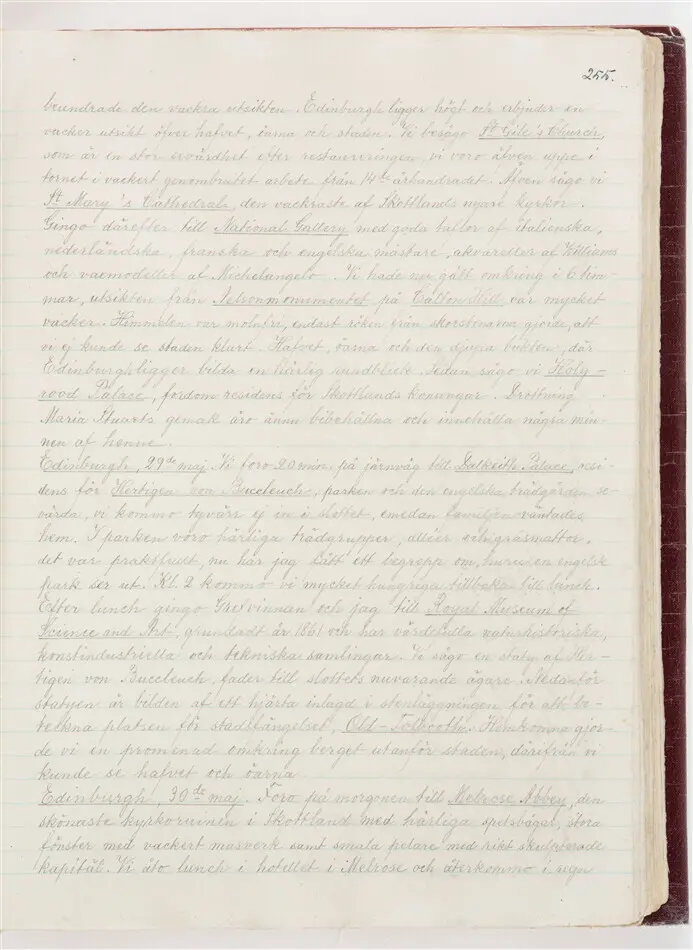 255.
beundrade den vackra utsikten. Edinburgh ligger högt och erbjuder en
vacker utsikt öfver hafvet, öarna och staden. Vi besågo St Gile's Church,
som är en stor sevärdhet efter restaureringen, vi voro äfven uppe i
tornet i vackert genombrutet arbete från 14de århundradet. Äfven sågo vi
St Mary's Cathedrale, den vackraste af Skottlands nyare kyrkor.
Gingo därefter till National Gallery med goda taflor af italienska,
nederländska, franska och engelska mästare, akvareller af Williams
och vaxmodeller af Michelangelo. Vi hade nu gått omkring i 6 tim-
mar, utsikten från Nelsonmonumentet på Calton Hill var mycket
vacker. Himmelen var molnfri, endast röken från skorstenarna gjorde, att
vi ej kunde se staden klart. Hafvet, öarna och den djupa bukten, där
Edinburgh ligger bilda en härlig anblick. Sedan sågo vi Holy-
rood Palace, fordom residens för Skottlands konungar. Drottning
Maria Stuarts gemak äro ännu bibehållna och innehålla några min-
nen af henne.
Edinburgh, 29de maj. Vi foro 20 min. på järnväg till Dalkeith Palace, resi-
dens för Hertigen von Buccleuch, parken och den engelska trädgården se-
värda, vi kommo tyvärr ej in i slottet, emedan familjen väntades
hem. I parken voro härliga trädgrupper, alléer och gräsmattor.
det var praktfullt, nu har jag fått ett begrepp om, huru en engelsk
park ser ut. Kl. 2 kommo vi mycket hungriga tillbaka till lunch.
Efter lunch gingo Grefvinnan och jag till Royal Museum of
Science and Art, grundadt år 1861 och har värdefulla naturhistoriska,
konstindustriella och tekniska samlingar. Vi sågo en staty af Her-
tigen von Buccleuch, fader till slottets nuvarande ägare. Nedanför
statyen är bilden af ett hjärta inlagd i stenläggningen för att be-
teckna platsen för stadsfängelset, Old-Tolbooth. Hemkomna gjor-
de vi en promenad omkring berget utanför staden, därifrån vi
kunde se hafvet och öarna.
Edinburgh, 30de maj. Foro på morgonen till Melrose Abbey, den
skönaste kyrkoruinen i Skottland med härliga spetsbågar, stora
fönster med vackert masverk samt smala pelare med rikt skulpterade
kapitäl. Vi åto lunch i hotellet i Melrose och återkommo i regn